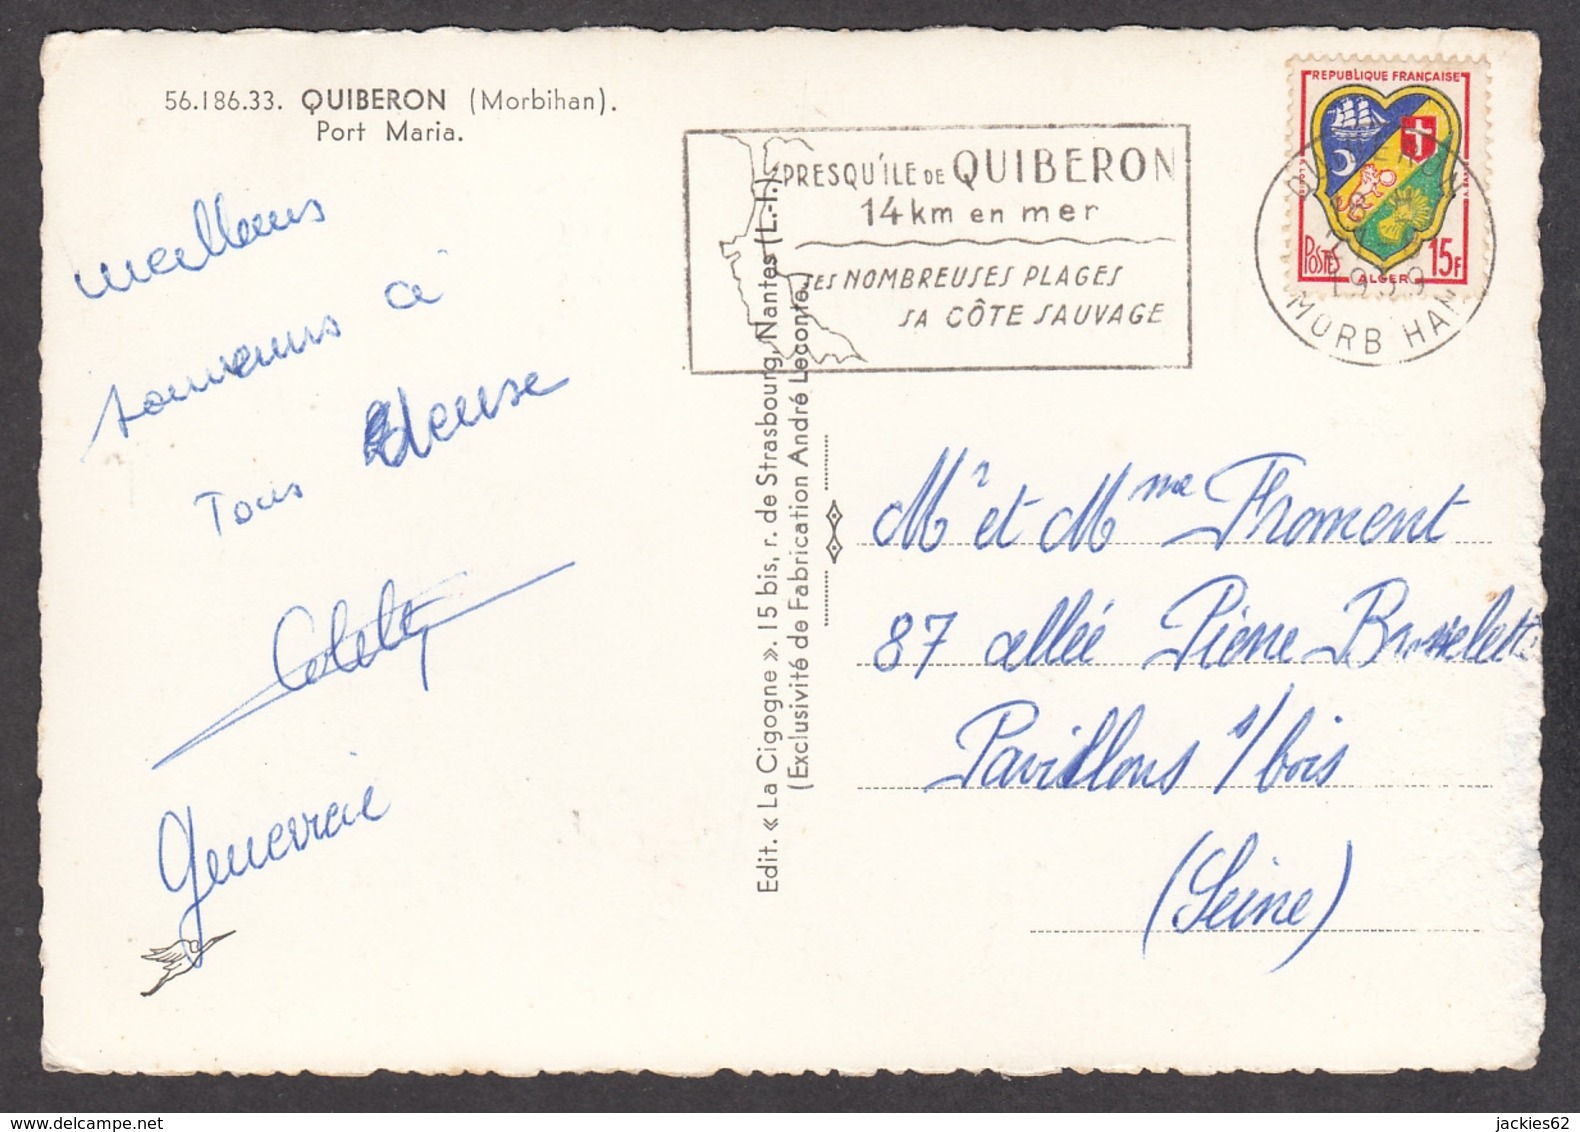 56.186.33. QUIBERON (Morbihan).
Port Maria.
meilleurs
souvenirs à
Tous
Genevieve
Edit. « La Cigogne ». 15 bis, r. de Strasbourg, Nantes (L.-I.).
(Exclusivité de Fabrication André Leconte.)
PRESQU'ILE DE QUIBERON
14 km en mer
SES NOMBREUSES PLAGES
SA CÔTE SAUVAGE
REPUBLIQUE FRANÇAISE
POSTES
ALGER
15F
QUIBERON
1959
MORB HAN
Mr et Mme Froment
87 allée Pierre Brossolette
Pavillons s/bois
(Seine)
jackies62